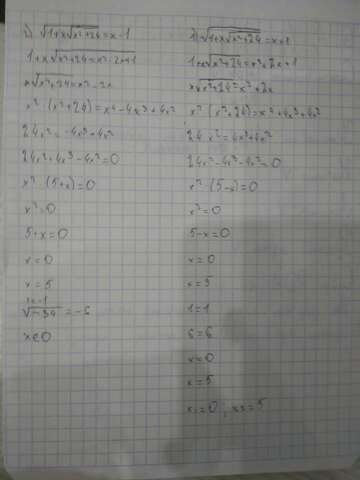 1) √(1+x√(x²+24)) = x-1
1+x√(x²+24) = x²-2x+1
x√(x²+24) = x²-2x
x²·(x²+24) = x⁴-4x³+4x²
24x² = -4x³+4x²
24x²+4x³-4x² = 0
x²·(5+x) = 0
x² = 0
5+x = 0
x = 0
x = 5
1 = -1
√(-34) = -6
x∈∅
√(1+x√(x²+24)) = x+1
1+x√(x²+24) = x²+2x+1
x√(x²+24) = x²+2x
x²·(x²+24) = x⁴+4x³+4x²
24x² = 4x³+4x²
24x²-4x³-4x² = 0
x²·(5-x) = 0
x² = 0
5-x = 0
x = 0
x = 5
1 = 1
6 = 6
x = 0
x = 5
x₁ = 0; x₂ = 5